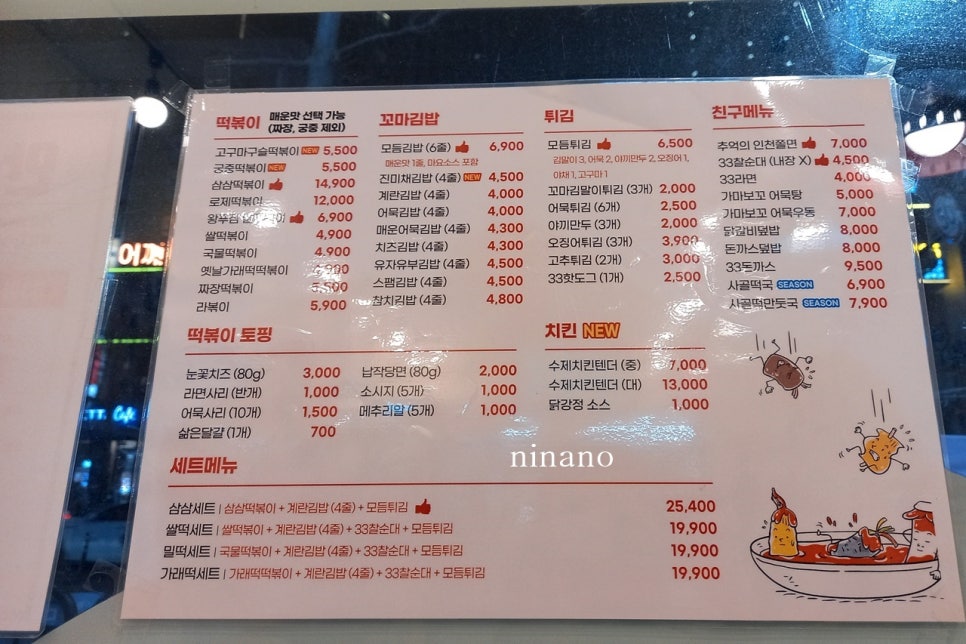 떡볶이 매운맛 선택 가능
(짜장, 궁중 제외)
고구마구슬떡볶이 NEW 5,500
궁중떡볶이 NEW 5,500
삼삼떡볶이 14,900
로제떡볶이 12,000
6,900
쌀떡볶이 4,900
국물떡볶이 4,900
옛날가래떡떡볶이 4,900
짜장떡볶이 5,500
라볶이 5,900
꼬마김밥
모듬김밥 (6줄) 6,900
매운맛 1줄, 마요소스 포함
진미채김밥 (4줄) NEW 4,500
계란김밥 (4줄) 4,000
어묵김밥 (4줄) 4,000
매운어묵김밥 (4줄) 4,300
치즈김밥 (4줄) 4,300
유자유부김밥 (4줄) 4,500
스팸김밥 (4줄) 4,500
참치김밥 (4줄) 4,800
튀김
모듬튀김 6,500
김말이 3, 어묵 2, 야끼만두 2, 오징어 1,
야채 1, 고구마 1
꼬마김말이튀김 (3개) 2,000
어묵튀김 (6개) 2,500
야끼만두 (3개) 2,000
오징어튀김 (3개) 3,900
고추튀김 (2개) 3,000
33핫도그 (1개) 2,500
친구메뉴
추억의 인천쫄면 7,000
33찰순대 (내장 X) 4,500
33라면 4,000
가마보꼬 어묵탕 5,000
가마보꼬 어묵우동 7,000
닭갈비덮밥 8,000
돈까스덮밥 8,000
33돈까스 9,500
사골떡국 SEASON 6,900
사골떡만둣국 SEASON 7,900
떡볶이 토핑
눈꽃치즈 (80g) 3,000
라면사리 (반개) 1,000
어묵사리 (10개) 1,500
삶은달걀 (1개) 700
납작당면 (80g) 2,000
소시지 (5개) 1,000
메추리알 (5개) 1,000
치킨 NEW
수제치킨텐더 (중) 7,000
수제치킨텐더 (대) 13,000
닭강정 소스 1,000
ninano
세트메뉴
삼삼세트 | 삼삼떡볶이 + 계란김밥 (4줄) + 모듬튀김 25,400
쌀떡세트 | 쌀떡볶이 + 계란김밥 (4줄) + 33찰순대 + 모듬튀김 19,900
밀떡세트 | 국물떡볶이 + 계란김밥 (4줄) + 33찰순대 + 모듬튀김 19,900
가래떡세트 | 가래떡떡볶이 + 계란김밥 (4줄) + 33찰순대 + 모듬튀김 19,900